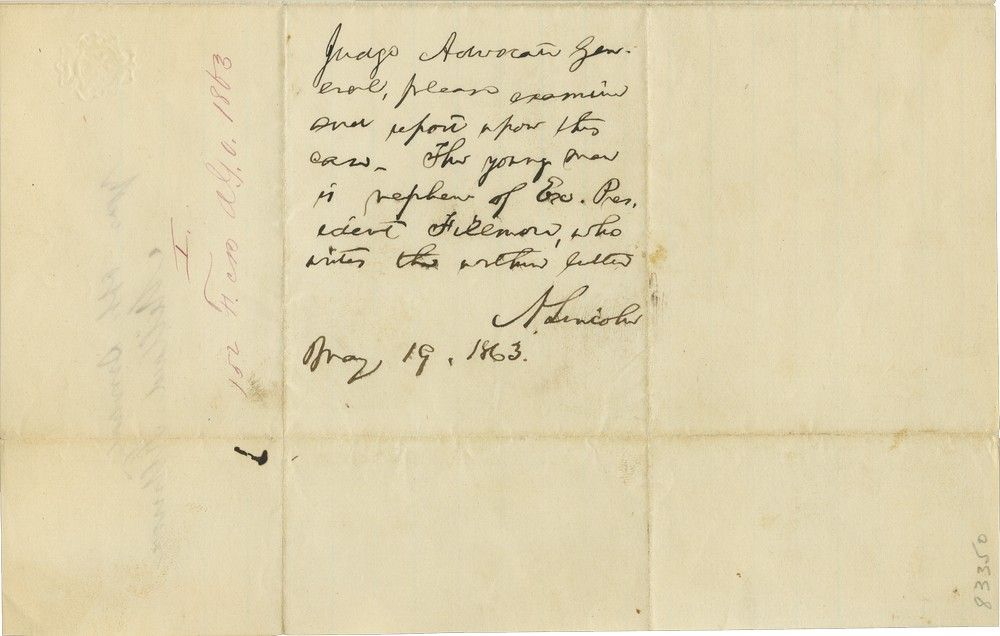 Judge Advocate Gen-
eral, please examine
and report upon this
case. The young man
is nephew of Ex. Pres-
ident Fillmore, who
writes the within letter
A. Lincoln
May 19, 1863.
I.
A.G.O. 1863
83350